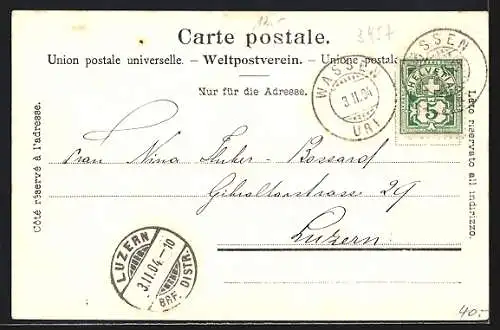 12.-
3457
Carte postale.
Union postale universelle. – Weltpostverein. – Unione postale
Nur für die Adresse.
WASSEN
3 II 04
URI
WASSEN
HELVETIA
5
Côté réservé à l'adresse.
Lato riservato all indirizzo.
Frau Nina Huber-Bossard
Gibraltarstrasse 29
Luzern.
LUZERN
3.II.04.-10
BRF. DISTR.
40.-